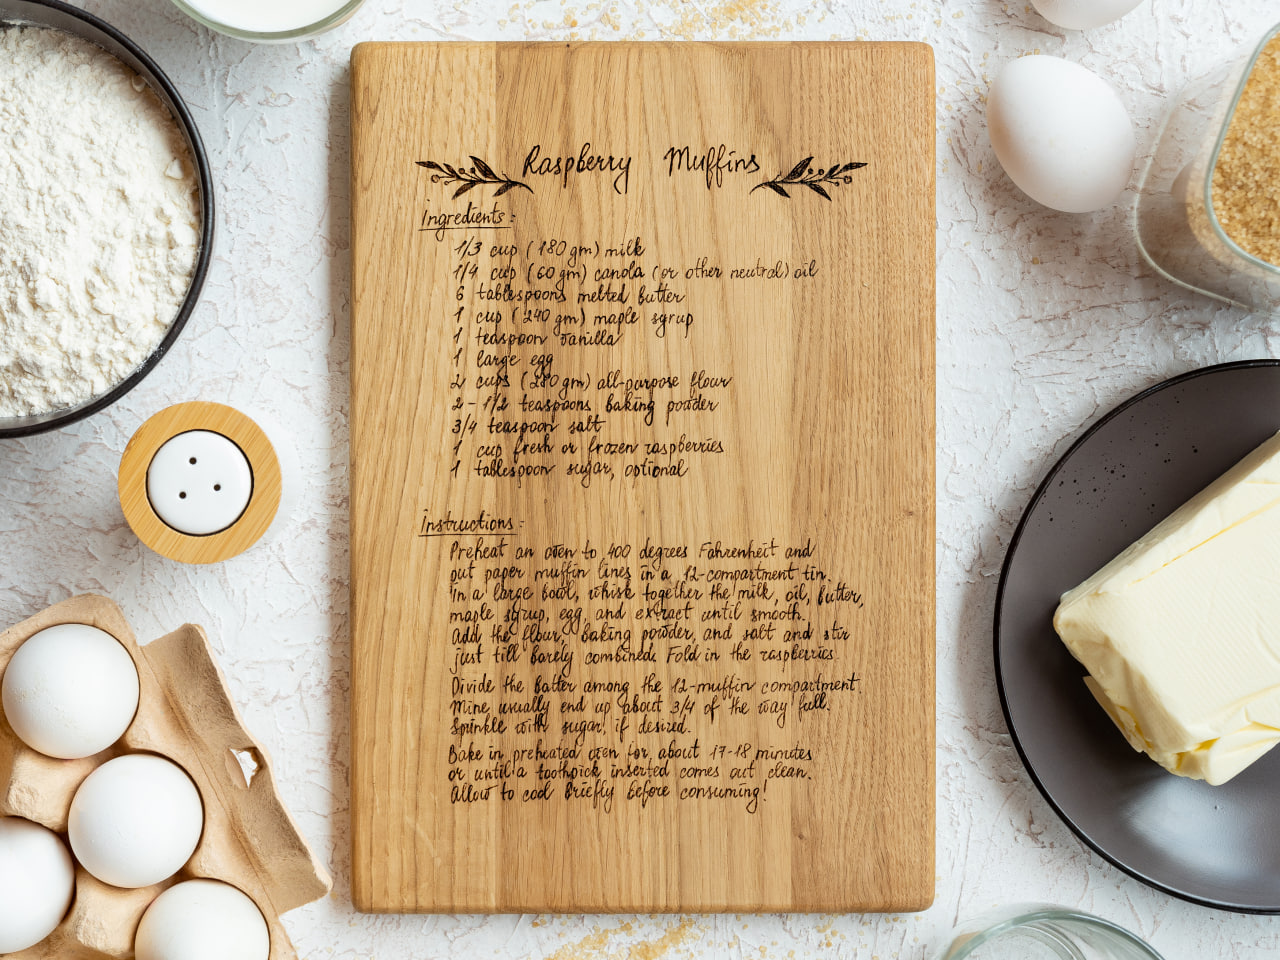 Raspberry Muffins
Ingredients:
1/3 cup (180 gm) milk
1/4 cup (60 gm) canola (or other neutral) oil
6 tablespoons melted butter
1 cup (240 gm) maple syrup
1 teaspoon vanilla
1 large egg
2 cups (280 gm) all-purpose flour
2-1/2 teaspoons baking powder
3/4 teaspoon salt
1 cup fresh or frozen raspberries
1 tablespoon sugar, optional
Instructions:
Preheat an oven to 400 degrees Fahrenheit and
put paper muffin lines in a 12-compartment tin.
In a large bowl, whisk together the milk, oil, butter,
maple syrup, egg, and extract until smooth.
Add the flour, baking powder, and salt and stir
just till barely combined. Fold in the raspberries.
Divide the batter among the 12-muffin compartment.
Mine usually end up about 3/4 of the way full.
Sprinkle with sugar, if desired.
Bake in preheated oven for about 17-18 minutes
or until a toothpick inserted comes out clean.
Allow to cool briefly before consuming!